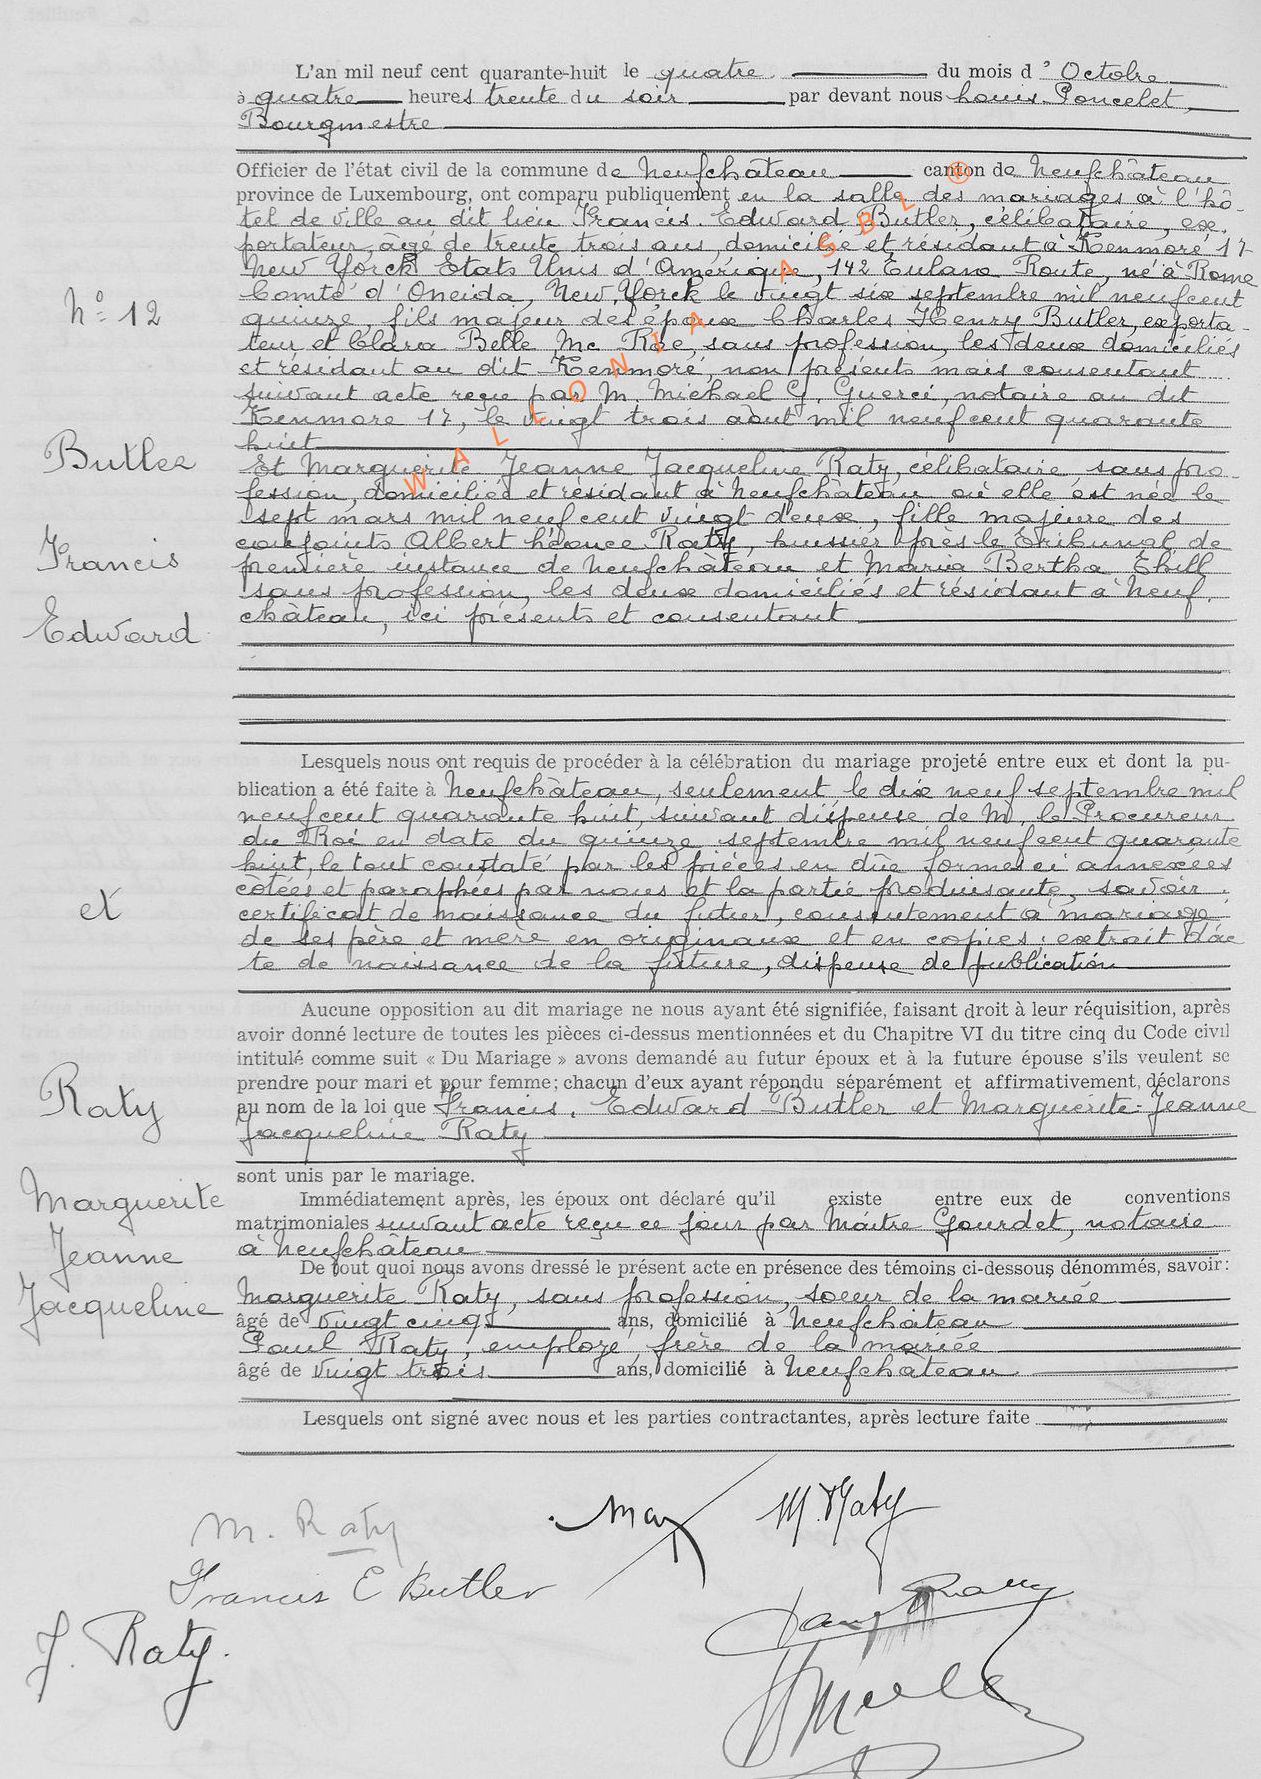 L'an mil neuf cent quarante-huit le quatre du mois d'Octobre
à quatre heures trente du soir par devant nous Louis Poncelet,
Bourgmestre
Officier de l'état civil de la commune de Neufchâteau canton de Neufchâteau
province de Luxembourg, ont comparu publiquement en la salle des mariages à l'hô-
tel de ville au dit lieu Francis. Edward Butler, célibataire, ex-
portateur, âgé de trente trois ans, domicilié et résidant à Kenmore 17
New Yorck États Unis d'Amérique, 142 Eulana Route, né à Rome
Comté d'Oneida, New Yorck le vingt six septembre mil neufcent
quinze, fils majeur des époux Charles Henry Butler, exporta-
teur et Clara Belle Mc Rae, sans profession, les deux domiciliés
et résidant au dit Kenmore, non présents mais consentant
suivant acte reçu par M. Michael G. Guerci, notaire au dit
Kenmore 17, le vingt trois août mil neufcent quarante
huit
N° 12
Butler
Francis
Edward
Et Marguerite Jeanne Jacqueline Raty, célibataire, sans pro-
fession, domiciliée et résidant à Neufchâteau où elle est née le
sept mars mil neuf cent vingt deux, fille majeure des
conjoints Albert Léonce Raty, huissier près le Tribunal de
première instance de Neufchâteau et Maria Bertha Thill
sans profession, les deux domiciliés et résidant à Neuf-
château, ici présents et consentant
Lesquels nous ont requis de procéder à la célébration du mariage projeté entre eux et dont la pu-
blication a été faite à Neufchâteau, seulement, le dix neuf septembre mil
neufcent quarante huit, suivant dispense de M. le Procureur
du Roi en date du quinze septembre mil neufcent quarante
huit, le tout constaté par les pièces en dûe forme ci annexées
cotées et paraphées par nous et la partie produisante, savoir :
certificat de naissance du futur, consentement à mariage
de ses père et mère en originaux et en copies, extrait d'ac
te de naissance de la future, dispense de publication
et
Aucune opposition au dit mariage ne nous ayant été signifiée, faisant droit à leur réquisition, après
avoir donné lecture de toutes les pièces ci-dessus mentionnées et du Chapitre VI du titre cinq du Code civil
intitulé comme suit « Du Mariage » avons demandé au futur époux et à la future épouse s'ils veulent se
prendre pour mari et pour femme; chacun d'eux ayant répondu séparément et affirmativement, déclarons
au nom de la loi que Francis. Edward Butler et Marguerite-Jeanne
Jacqueline Raty
sont unis par le mariage.
Raty
Marguerite
Jeanne
Jacqueline
Immédiatement après, les époux ont déclaré qu'il existe entre eux de conventions
matrimoniales suivant acte reçu ce jour par Maître Gourdet, notaire
à Neufchâteau
De tout quoi nous avons dressé le présent acte en présence des témoins ci-dessous dénommés, savoir:
Marguerite Raty, sans profession, soeur de la mariée
âgé de vingt cinq ans, domicilié à Neufchâteau
Paul Raty, employé, frère de la mariée
âgé de vingt trois ans, domicilié à Neufchâteau
Lesquels ont signé avec nous et les parties contractantes, après lecture faite
M. Raty
M. Raty
Francis E Butler
J. Raty.
WALLONIA ASBL ®